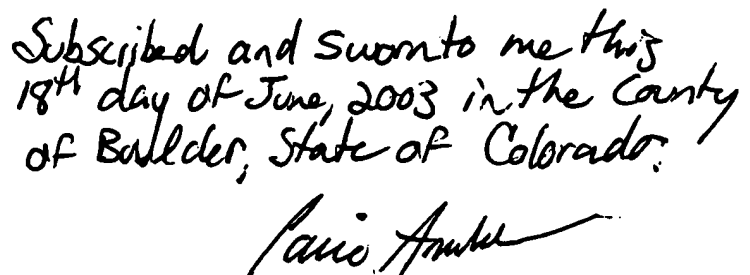 Subscribed and sworn to me this
18th day of June, 2003 in the County
of Boulder, State of Colorado.